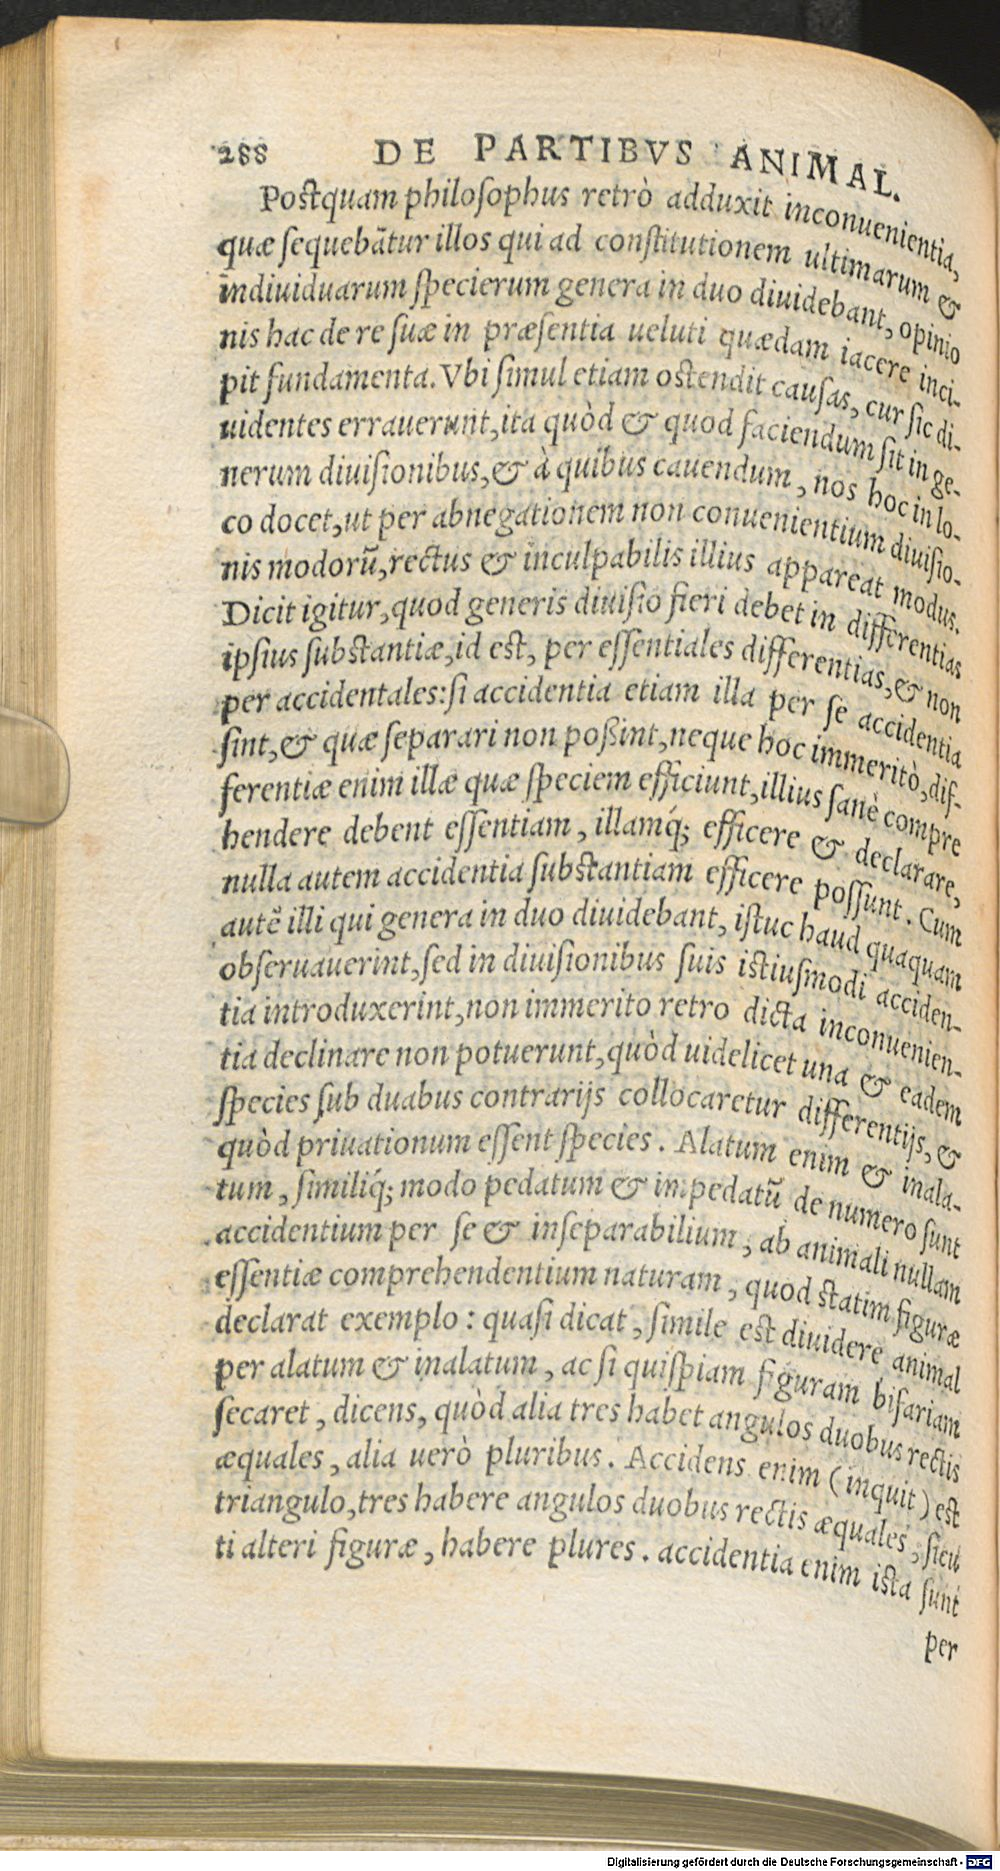 288 DE PARTIBVS ANIMAL.
Postquam philosophus retrò adduxit inconuenientia,
quæ sequebātur illos qui ad constitutionem ultimarum &
indiuiduarum specierum genera in duo diuidebant, opinio
nis hac de re suæ in præsentia ueluti quædam iacere inci-
pit fundamenta. Vbi simul etiam ostendit causas, cur sic di-
uidentes errauerunt, ita quòd & quod faciendum sit in ge-
nerum diuisionibus, & à quibus cauendum, nos hoc in lo-
co docet, ut per abnegationem non conuenientium diuisio-
nis modorũ, rectus & inculpabilis illius appareat modus.
Dicit igitur, quod generis diuisio fieri debet in differentias
ipsius substantiæ, id est, per essentiales differentias, & non
per accidentales: si accidentia etiam illa per se accidentia
sint, & quæ separari non poßint, neque hoc immeritò, dif-
ferentiæ enim illæ quæ speciem efficiunt, illius sanè compre
hendere debent essentiam, illamq́; efficere & declarare,
nulla autem accidentia substantiam efficere possunt. Cum
autē illi qui genera in duo diuidebant, istuc haud quaquam
obseruauerint, sed in diuisionibus suis istiusmodi acciden-
tia introduxerint, non immerito retro dicta inconuenien-
tia declinare non potuerunt, quòd uidelicet una & eadem
species sub duabus contrarijs collocaretur differentijs, &
quòd priuationum essent species. Alatum enim & inala-
tum, similiq́; modo pedatum & impedatũ de numero sunt
accidentium per se & inseparabilium, ab animali nullam
essentiæ comprehendentium naturam, quod statim figuræ
declarat exemplo: quasi dicat, simile est diuidere animal
per alatum & inalatum, ac si quispiam figuram bifariam
secaret, dicens, quòd alia tres habet angulos duobus rectis
æquales, alia uerò pluribus. Accidens enim (inquit) est
triangulo, tres habere angulos duobus rectis æquales, sicu
ti alteri figuræ, habere plures. accidentia enim ista sunt
per
Digitalisierung gefördert durch die Deutsche Forschungsgemeinschaft - DFG